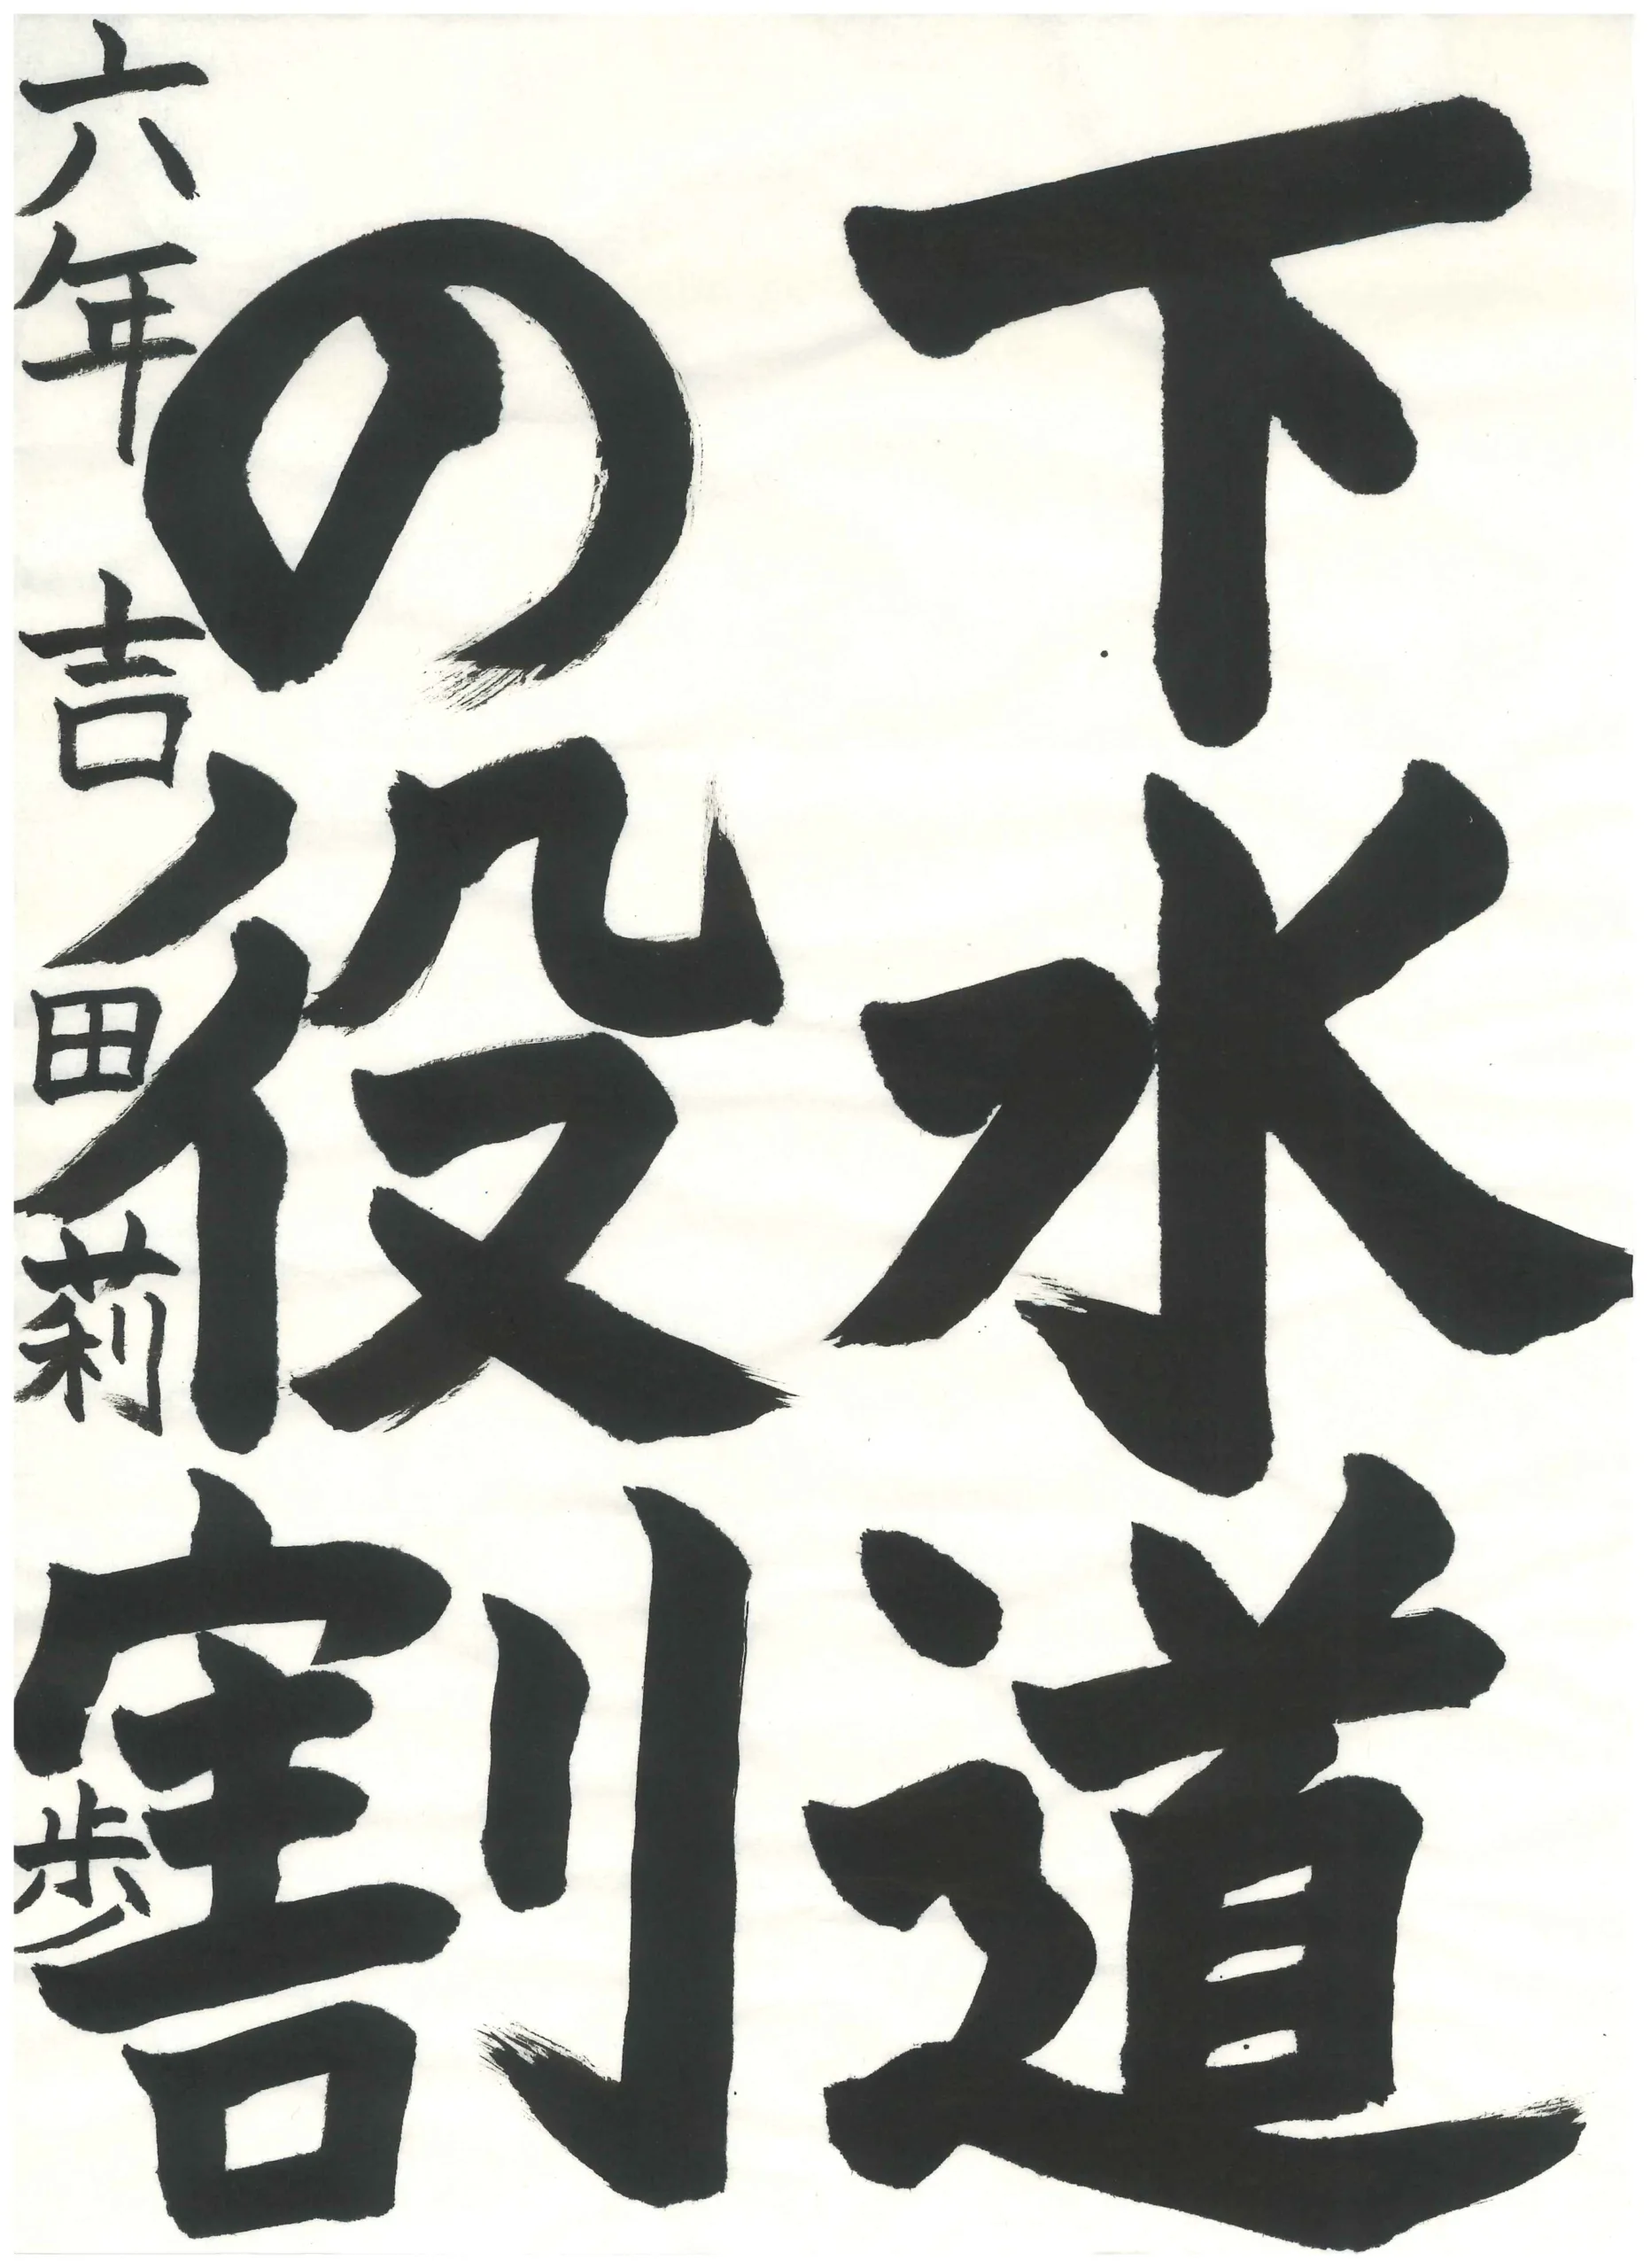 下水道
の役割
六年 吉田莉歩